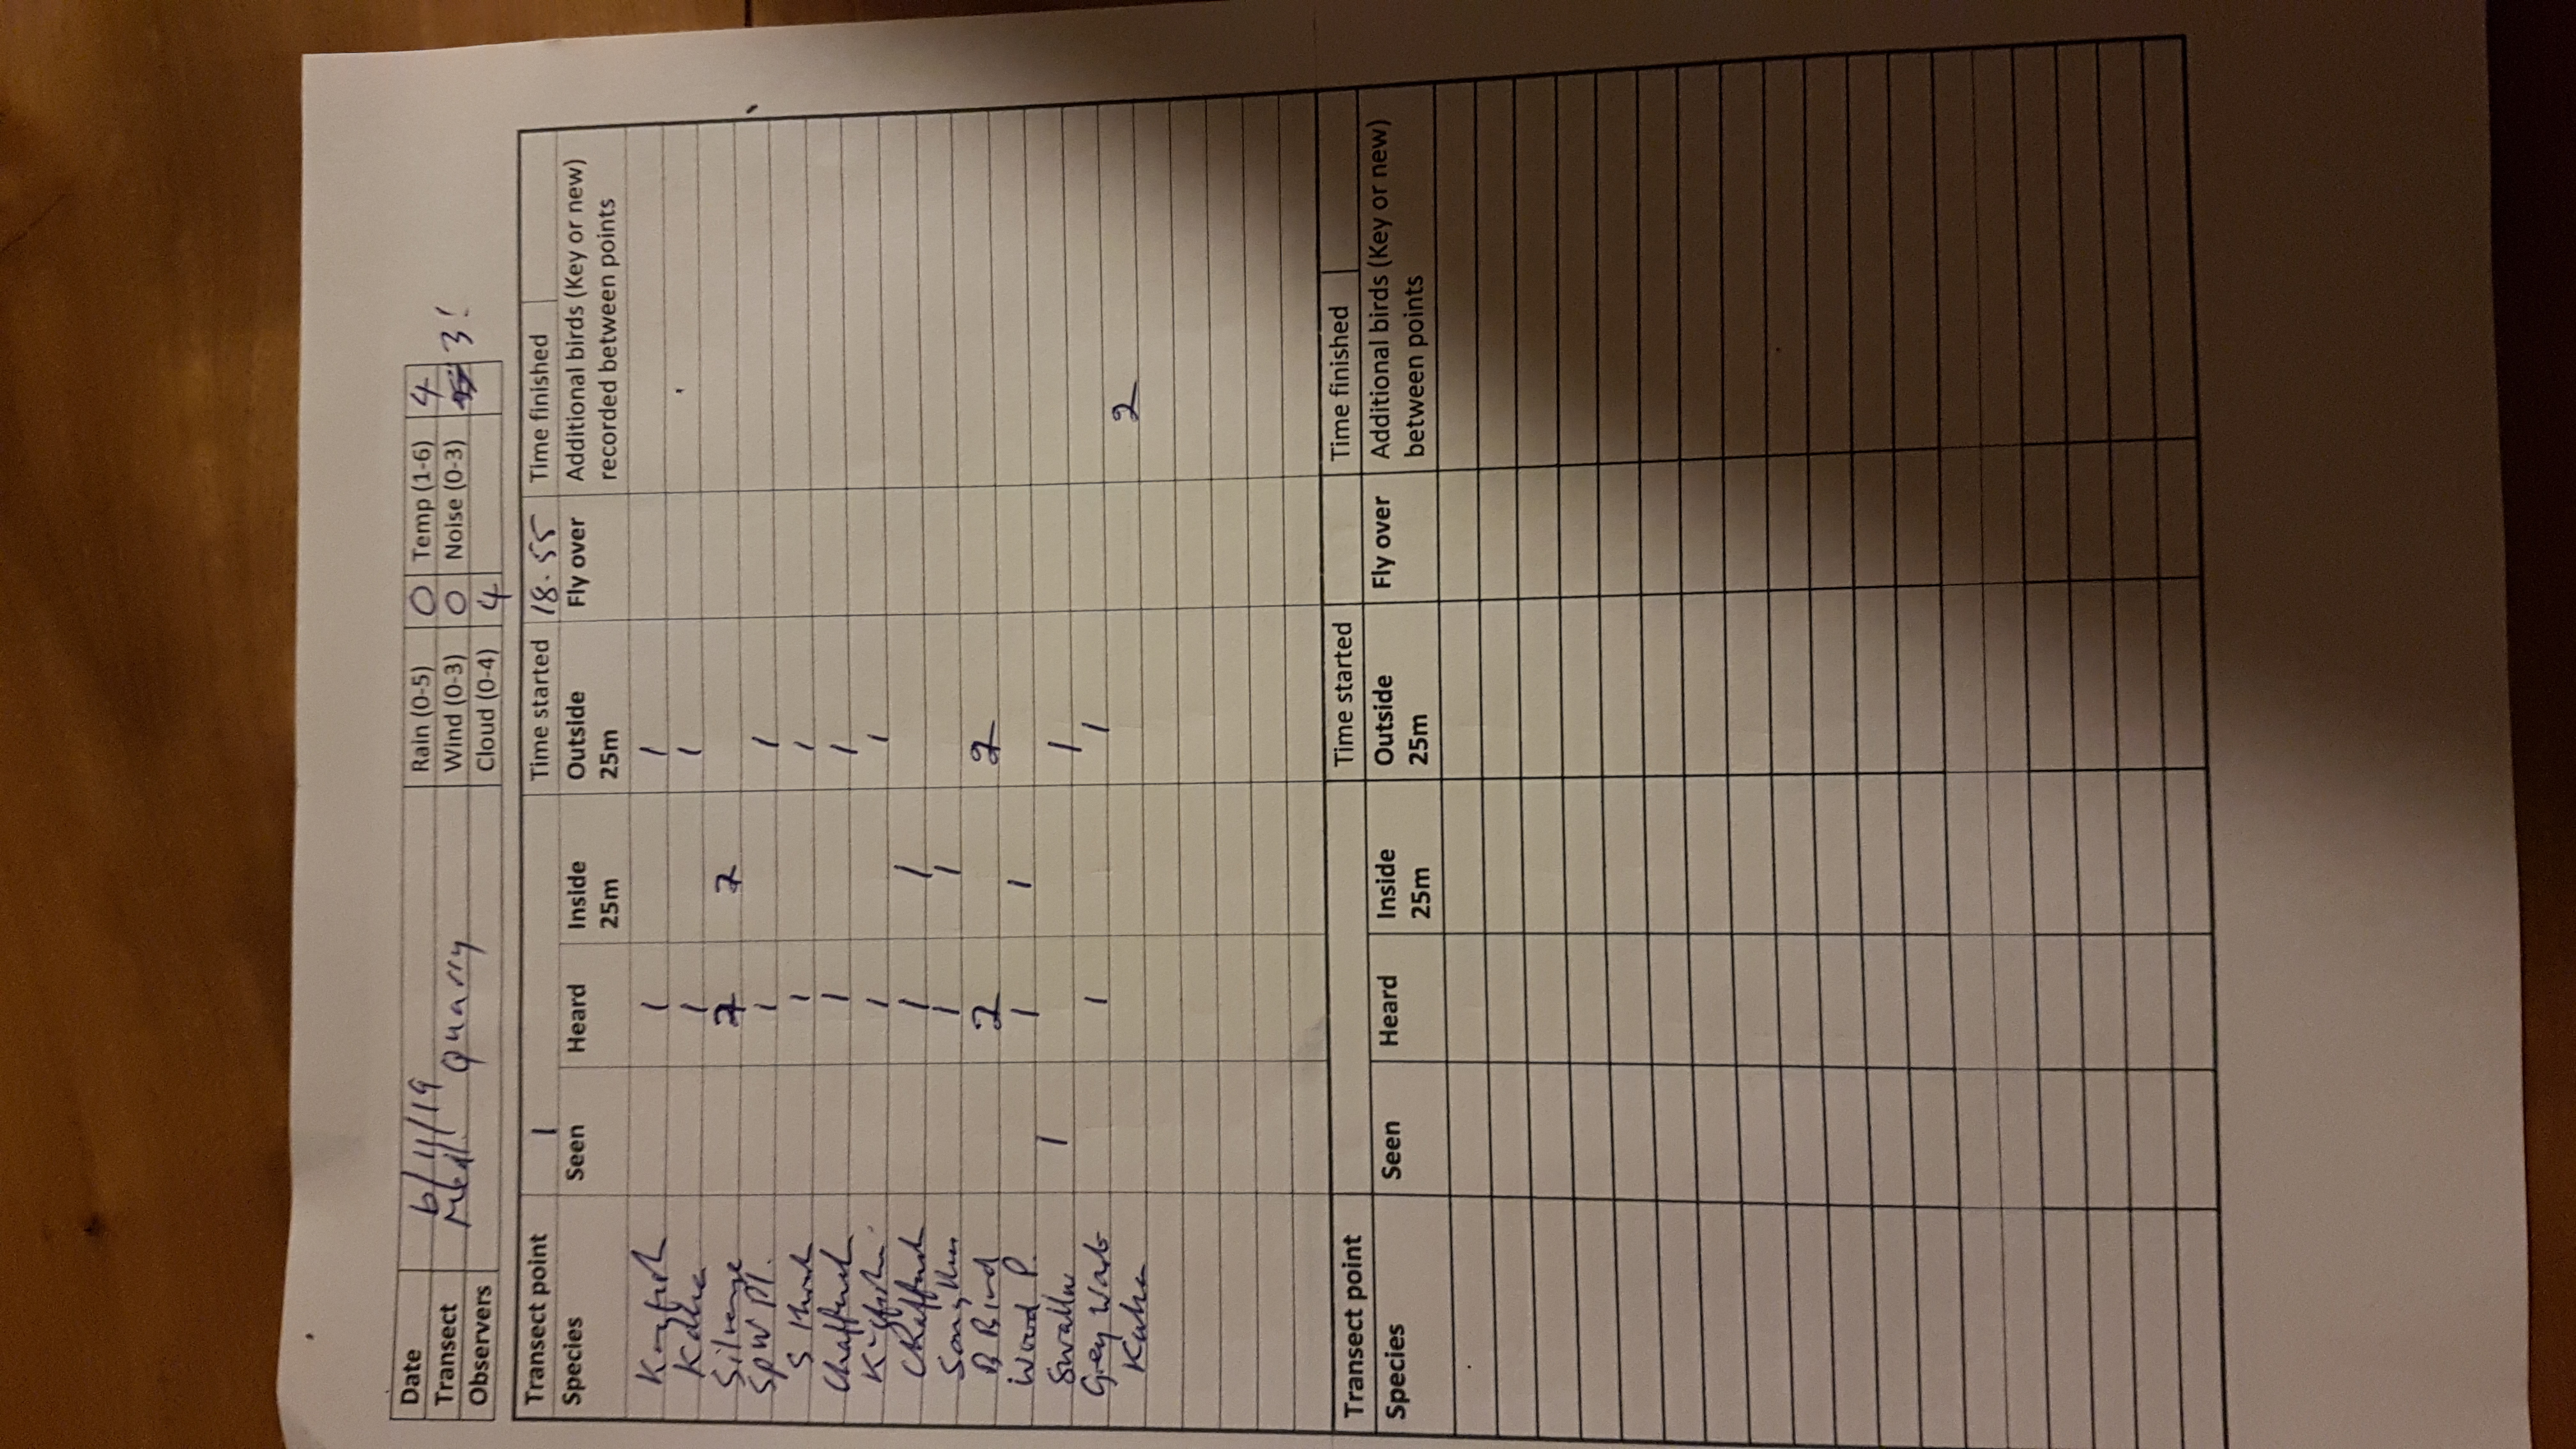 Date 6/11/19 Rain (0-5) 0 Temp (1-6) 4
Transect Quarry Wind (0-3) 0 Noise (0-3) 3!
Observers Cloud (0-4) 4
Transect point 1 Time started 18.55 Time finished
Species Seen Heard Inside 25m Outside 25m Fly over Additional birds (Key or new) recorded between points
Kingfish 1 1
Kaka 1 1
Silvereye 7 7
SpW Pl. 1 1
S Thrush 1 1
Chaffinch 1 1
Kingfisher 1 1
Chaffinch 1 1
Song Thru 1 1
B Bird 2 2
Wood P. 1 1
Swallow 1 1
Grey Warb 1 1
Kaka 2
Transect point Time started Time finished
Species Seen Heard Inside 25m Outside 25m Fly over Additional birds (Key or new) between points